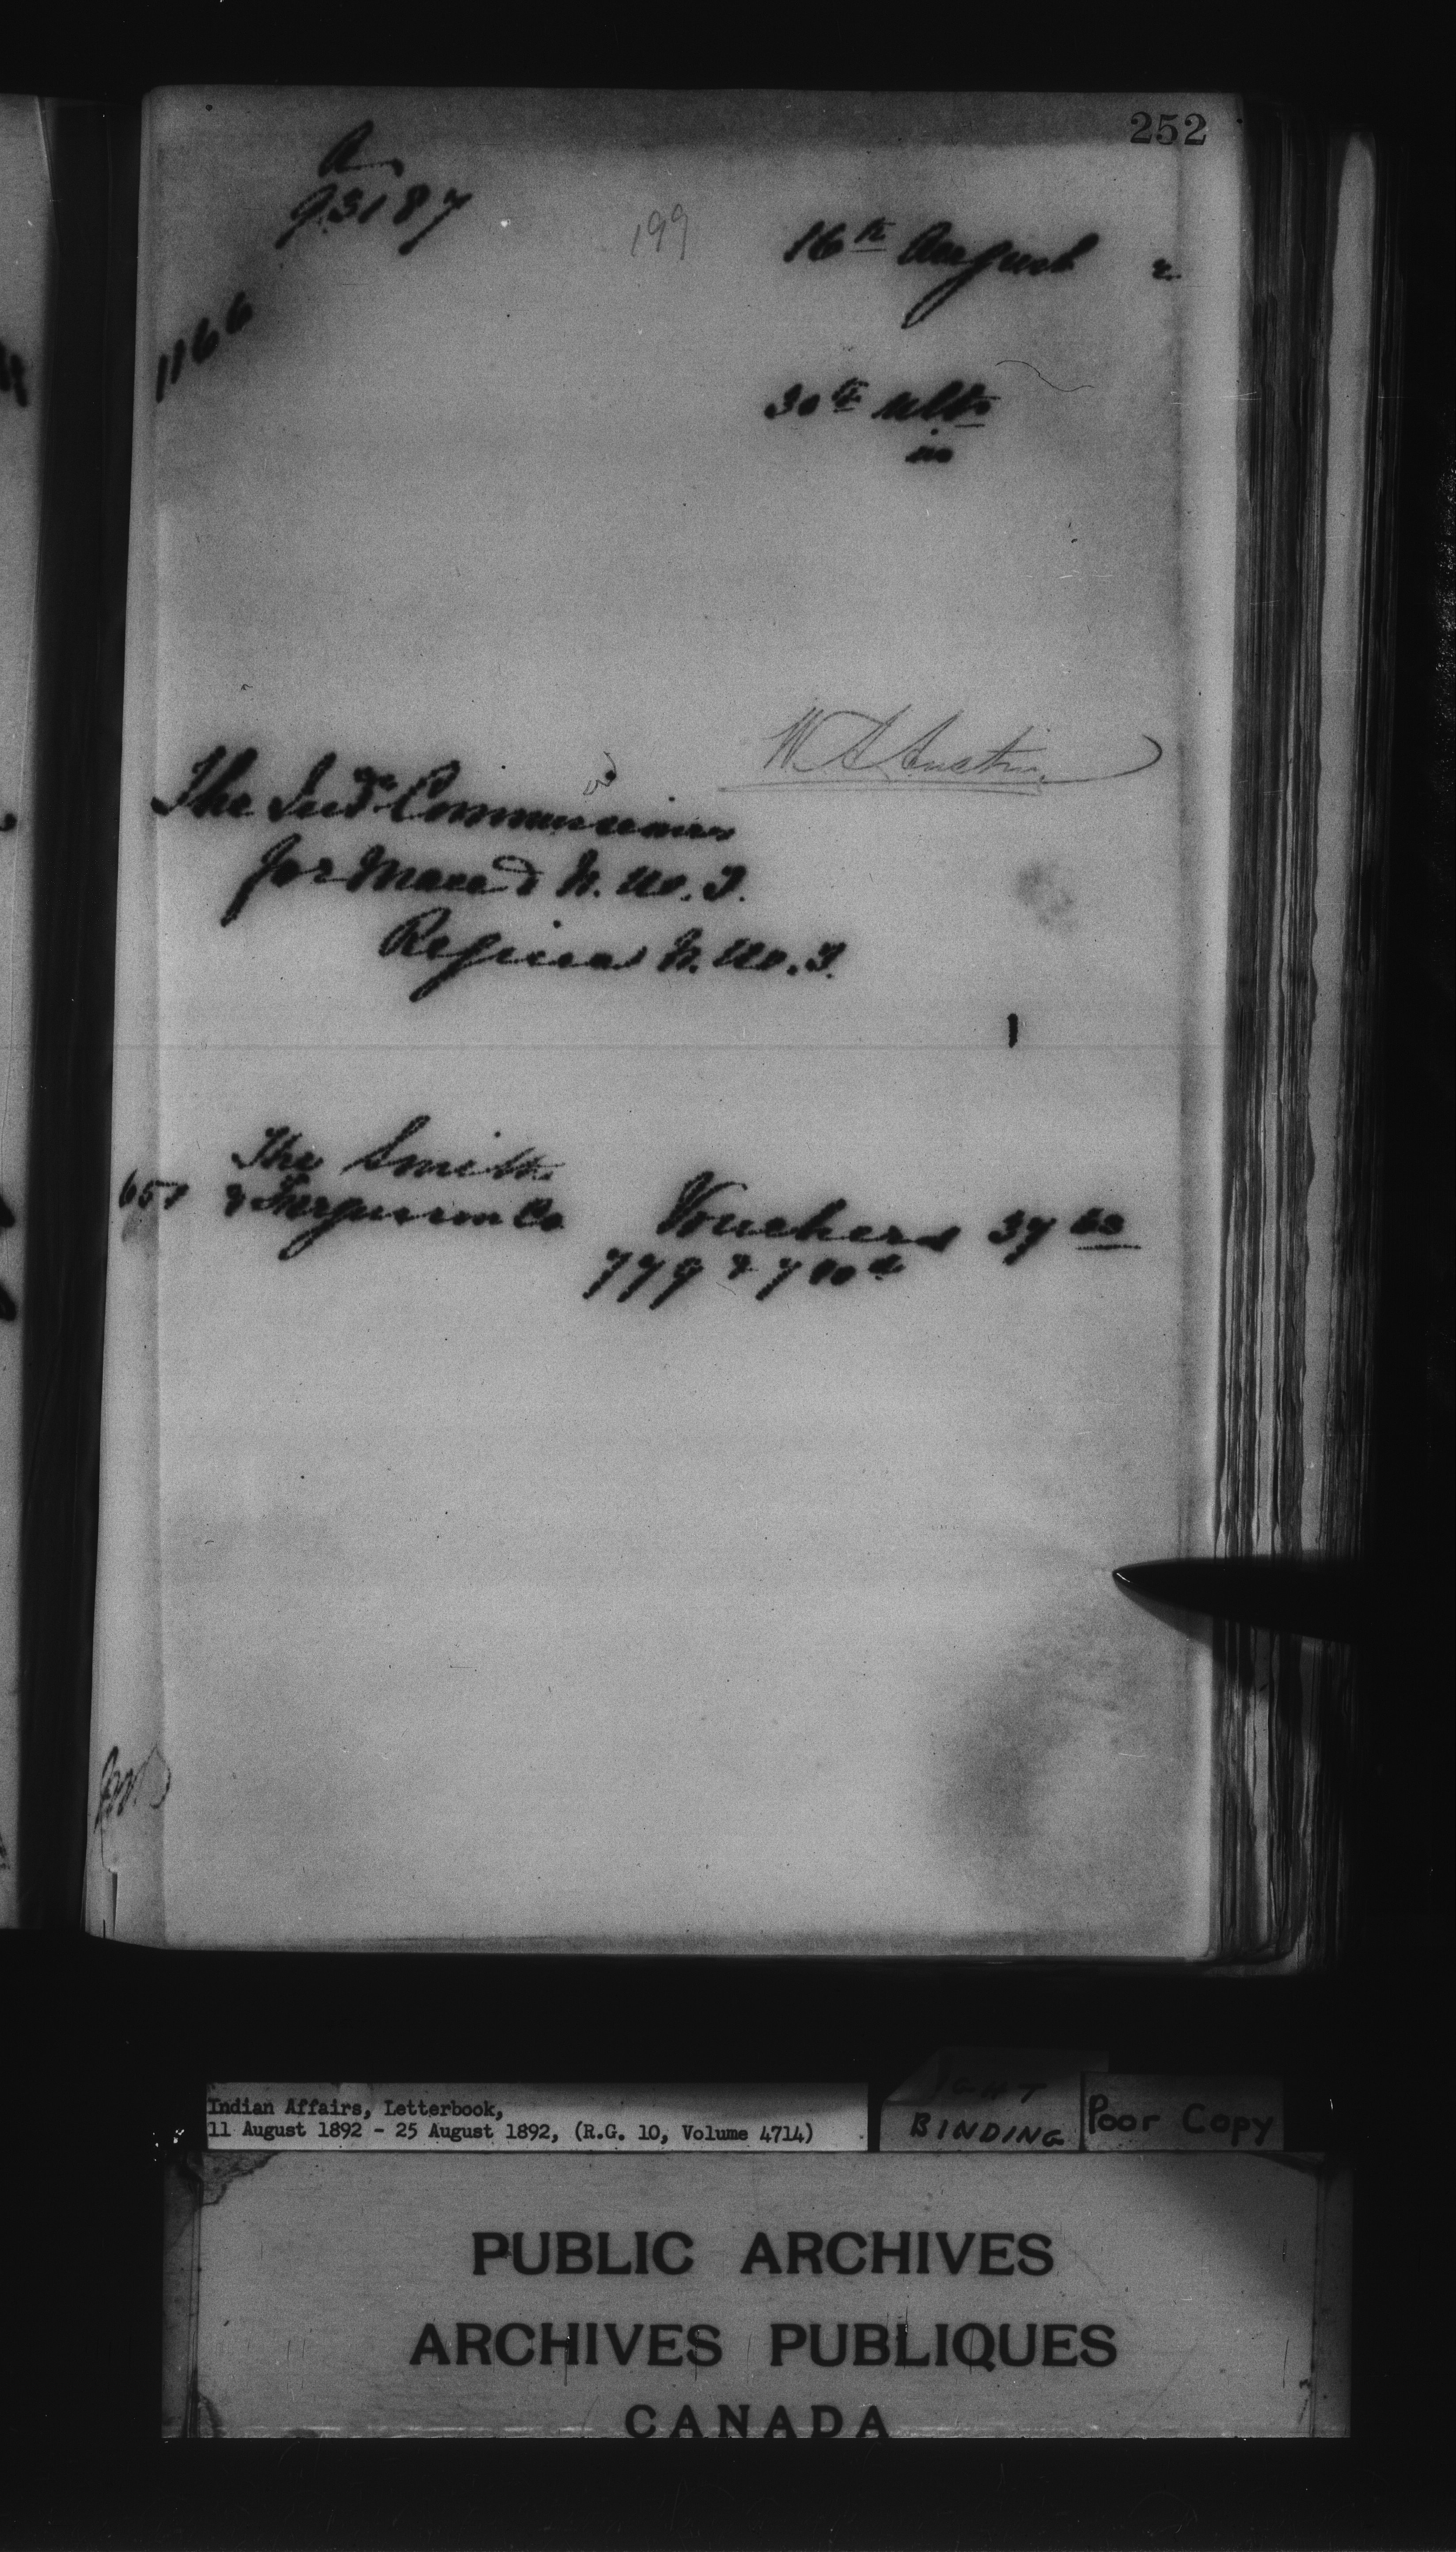 252
A
93187
199
16th August 2
1166
30th ulto
in
W A Austin
The Ind. Commissioner
for Man & N.W.T.
Regina N.W.T.
1
The Smith
651 & Ferguson Co Vouchers 37
779 &
Indian Affairs, Letterbook,
11 August 1892 - 25 August 1892, (R.G. 10, Volume 4714)
BINDING
Poor Copy
PUBLIC ARCHIVES
ARCHIVES PUBLIQUES
CANADA